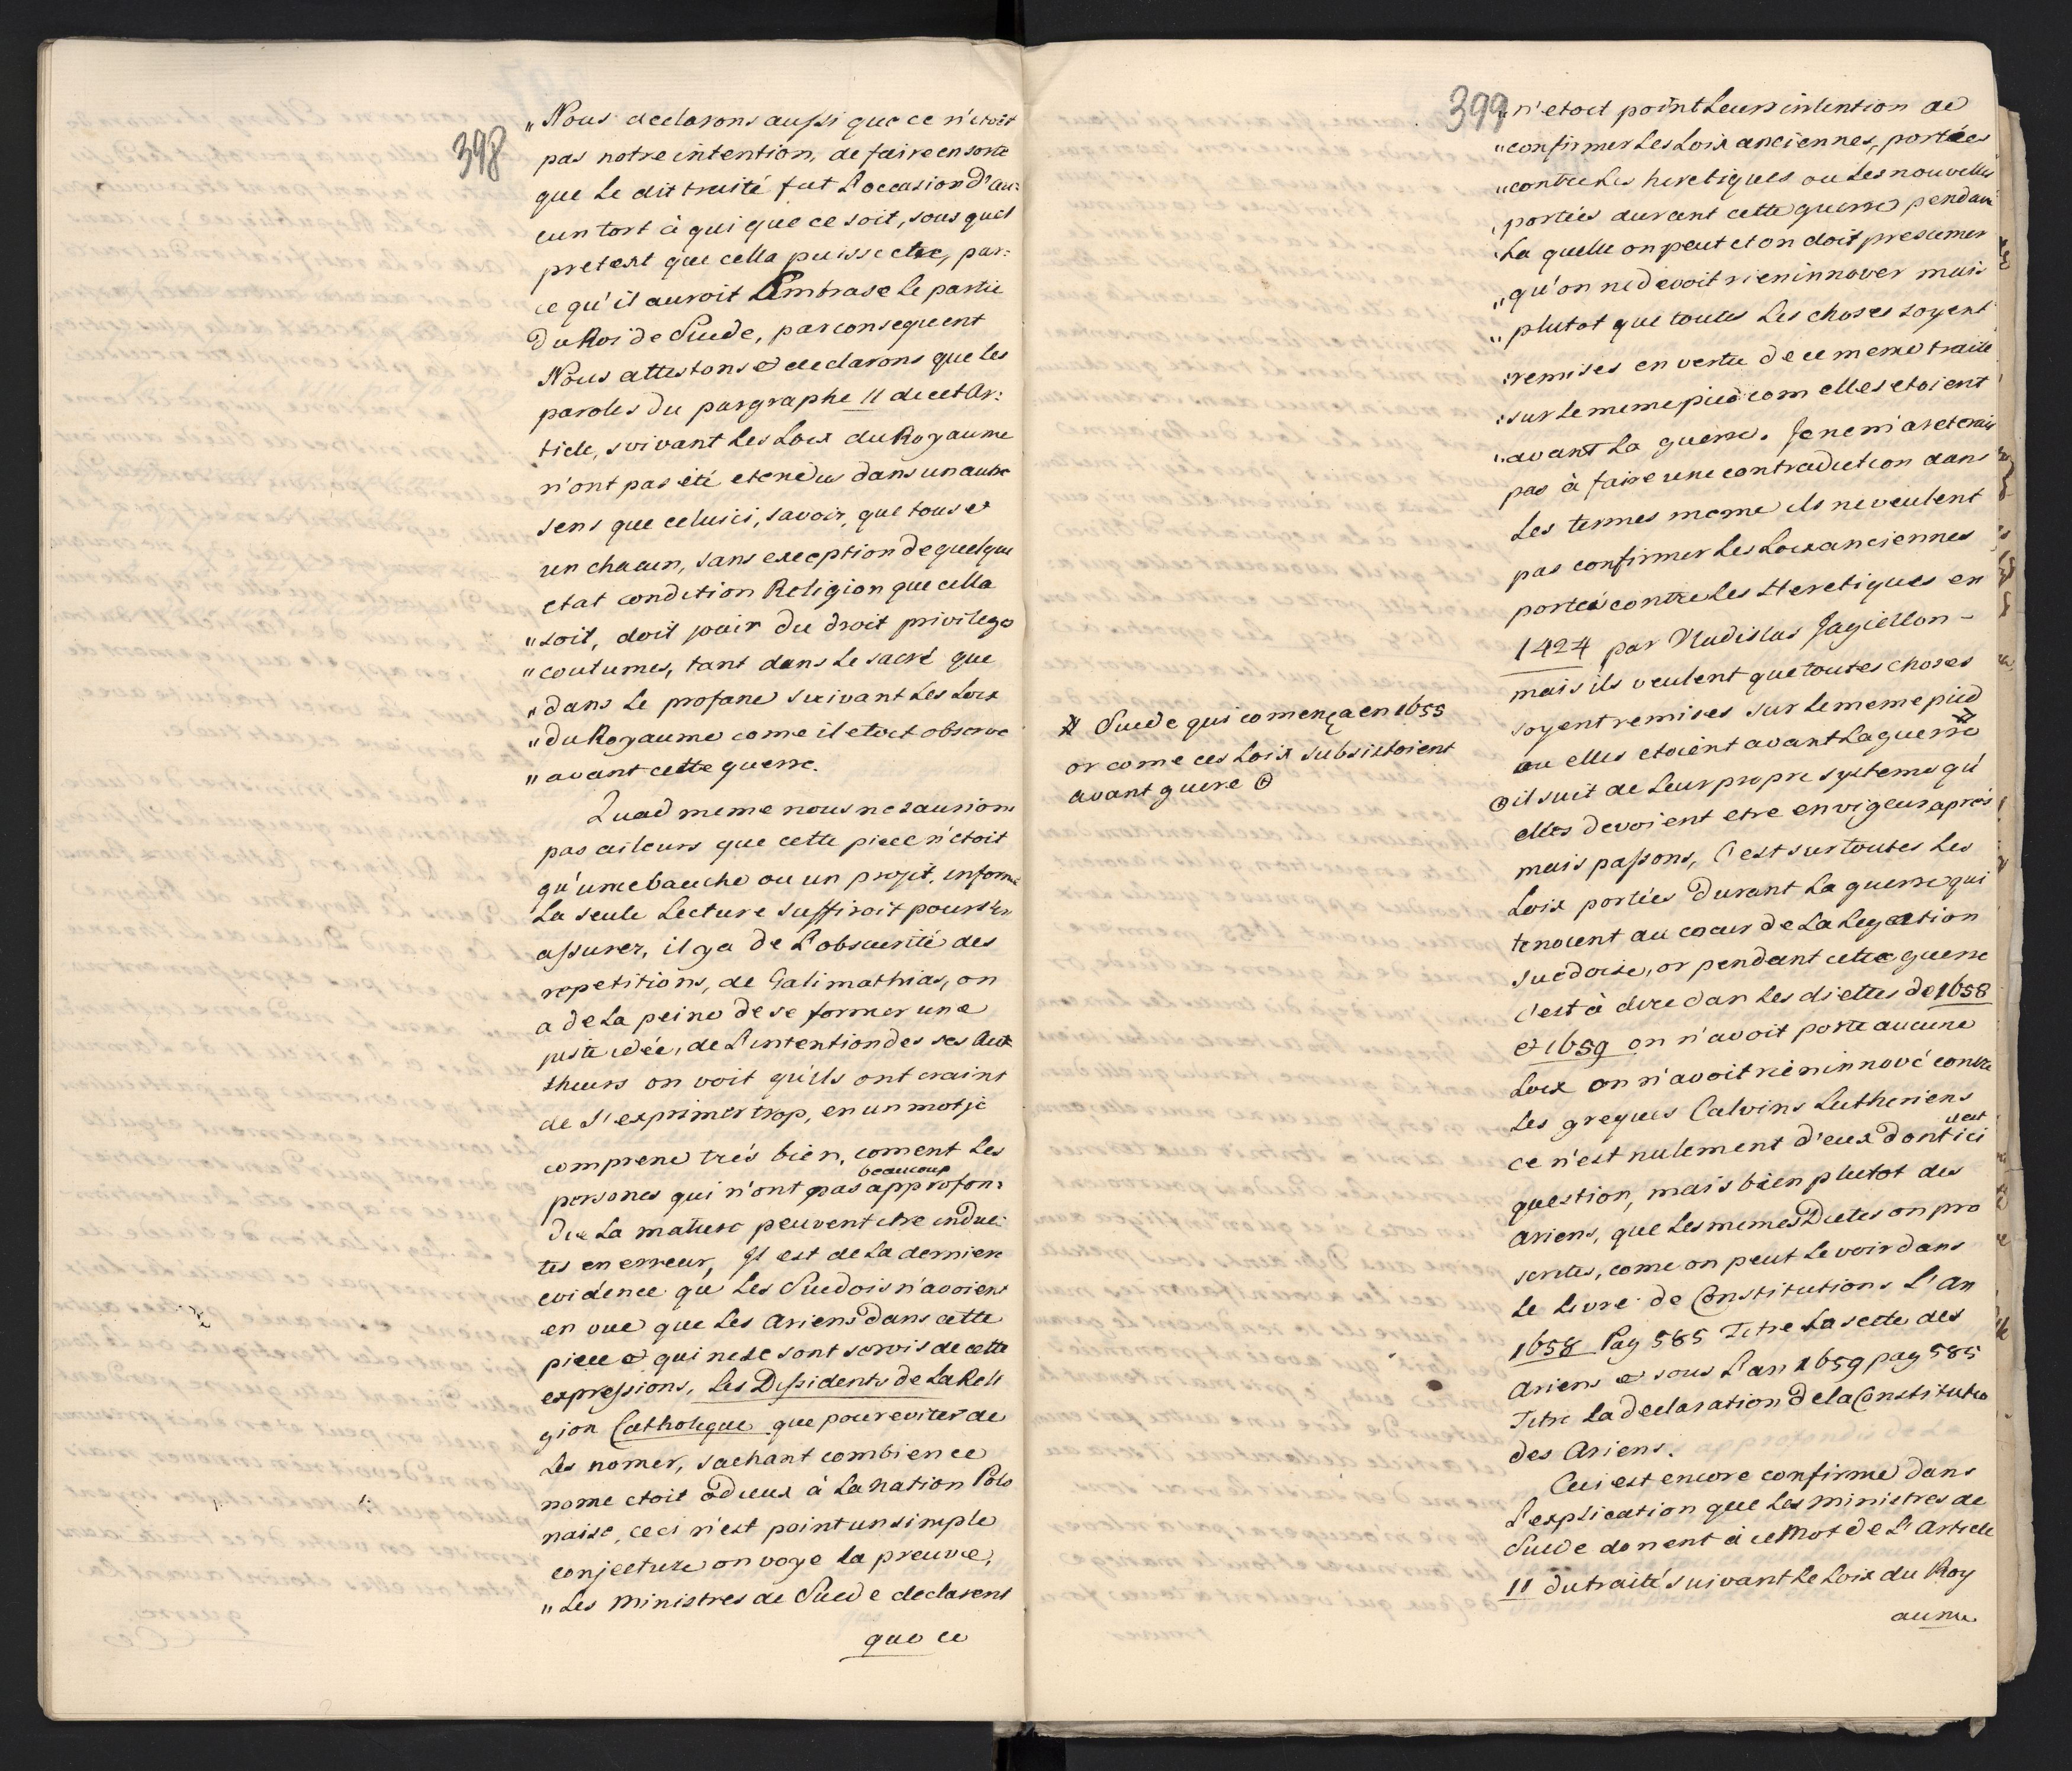 398
„Nous declarons aussi que ce n'etoit
pas notre intention, de faire en sorte
que Le dit traité fut L'occasion d'au:
cun tort à qui que ce soit, sous quel
pretext que cella puisse etre, par:
ce qu'il auroit Embrasé Le partie
Du Roi de Suede, par consequent
Nous attestons & declarons que les
paroles du pargraphe 11 de cet Ar:
ticle, suivant Les Loix du Royaume
n'ont pas été etendus dans un autre
sens que celui ci, savoir, que tous et
un chacun, sans exception de quelque
etat condition Religion que cella
„soit, doit jouir du droit privilege
„coutumes, tant dans Le sacré que
„dans Le profane suivant Les Loix
„du Royaume come il etoit observé
„avant cette guerre.
Quad meme nous ne saurions
pas ailleurs que cette piece n'etoit
qu'une bauche ou un projet, informe
La seule Lecture suffiroit pour s'en
assurer, il y a de L'obscurité des
repetitions, de Galimathias, on
a de La peine de se former une
juste idée, de L'intention des ses Aut
theurs on voit qu'ils ont craint
de s'exprimer trop, en un mot je
comprene trés bien, coment Les
beaucoup
persones qui n'ont pas approfon:
die La matiere peuvent etre indui:
tes en erreur, Il est de La derniere
evidence qu Les Suedois n'avoient
en vue que Les Ariens Dans cette
piece & qui ne se sont servis de cette
expressions, Les Dissidents de La Reli
gion Catholique que pour eviter de
Les nomer, sachant combien ce
nome etoit odieux à La nation Polo
naise, ceci n'est point un simple
conjecture on voye La preuve,
„Les Ministres de Suede declarent
que ce
399
„n'etoit point Leurs intention de
„confirmer Les Loix anciennes, portées
„contre Les heretiques ou Les nouvelles
„portées durant cette guerre pendant
„La quelle on peut et on doit presumer
„qu'on ne devoit rien innover mais
„plutot que toutes Les choses soyent
„remises en vertu de ce meme traité
„sur Le meme pied com elles etoient
„avant La guerre. Je ne m'areterais
pas à faire une contradiction dans
Les termes meme ils ne veulent
pas confirmer Les Loix anciennes
portées contre Les Heretiques en
1424 par Vladislas Jagiellon –
mais ils veulent que toutes choses
soyent remises sur Le meme pied
ou elles etoient avant La guerre
Suede qui començа en 1655
or come ces Loix subsistoient
avant guere
il suit de Leur propre systeme qu'
elles devoient etre en vigeur aprés
mais passons, C'est sur toutes Les
Loix portées Durant La guerre qui
tenoient au coeur de La Legation
suedoise, or pendant cette guerre
c'est à dire dan Les diettes de 1658
& 1659 on n'avoit porté aucune
Loix on n'avoit rien innové contre
Les greques Calvins Lutheriens
il est
ce n'est nulement d'eux dont ici
question, mais bien plutot des
Ariens, que Les memes Dietes on pro
scrites, come on peut Le voir dans
Le Livre de Constitutions L'An
1658 Pag 585 Titre La secte des
Ariens & sous L'an 1659 pag 585
Titre La declaration de la Constitutio
des Ariens.
Ceci est encore confirme dans
L'explication que Les Ministres de
Suede donent à ce Mot de L'Article
11 du traité suivant Le Loix du Roy
aume